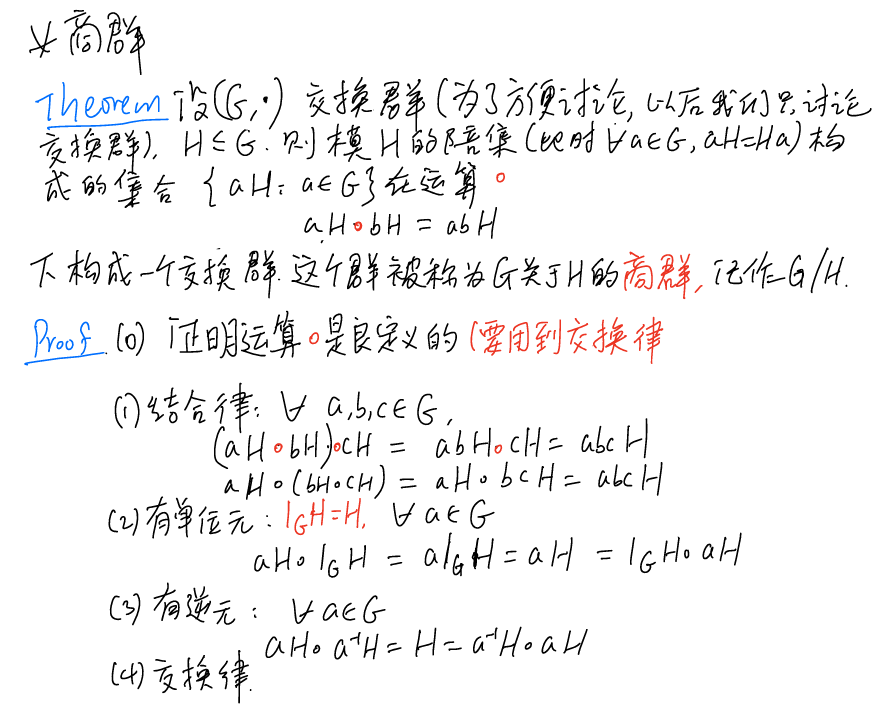 * 商群
Theorem 设(G,·) 交换群(为了方便讨论,以后我们只讨论
交换群), H≤G. 则模H的陪集(此时∀a∈G, aH=Ha)构
成的集合 {aH: a∈G}在运算∘
aH∘bH = abH
下构成一个交换群. 这个群被称为G关于H的商群, 记作G/H.
Proof (0) 证明运算∘是良定义的 (要用到交换律
(1)结合律: ∀ a,b,c∈G,
(aH∘bH)∘cH = abH∘cH = abcH
aH∘(bH∘cH) = aH∘bcH = abcH
(2)有单位元: 1_GH=H, ∀a∈G
aH∘1_GH = a1_GH = aH = 1_GH∘aH
(3)有逆元: ∀a∈G
aH∘a⁻¹H = H = a⁻¹H∘aH
(4)交换律.